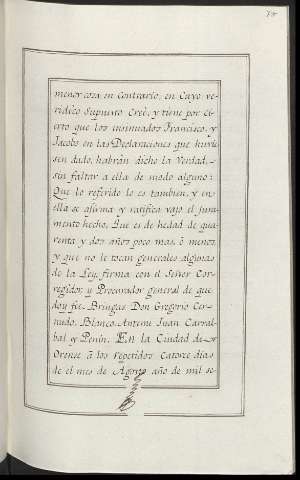 menor cosa en contrario, en Cuyo ve-
ridico Supuesto Creè, y tiene por ci-
erto que los insinuados Francisco, y
Jacobo en las Declaraciones que huvie-
sen dado, habràn dicho la Verdad,
sin faltar à ella de modo alguno:
Que lo referido lo es tambien, y en
ella se afirma y ratifica vajo el jura-
mento hecho, Que es de hedad de qua-
renta y dos años poco mas, ò menos,
y que no le tocan generales algunas
de la Ley, firma con el Señor Cor-
regidor, y Procurador general de que
doy fee. Bringas. Don Gregorio Cer-
nudo. Blanco. Antemi Juan Carval-
bal y Penin. En la Ciudad de
Orense à los repetidos Catorce dias
de el mes de Agosto año de mil se-